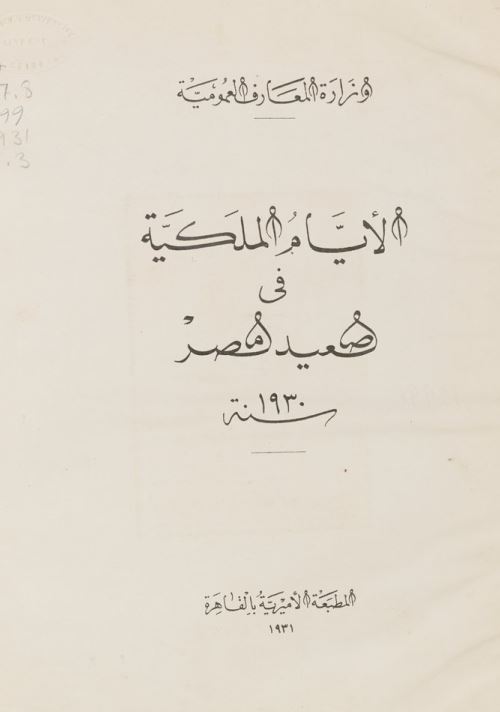 وزارة المعارف العمومية
الأيَّامُ الملَكيَّة
فى
صعيد مصر
سنة ١٩٣٠
المطبَعَة الأميريَّة بالقاهرة
١٩٣١